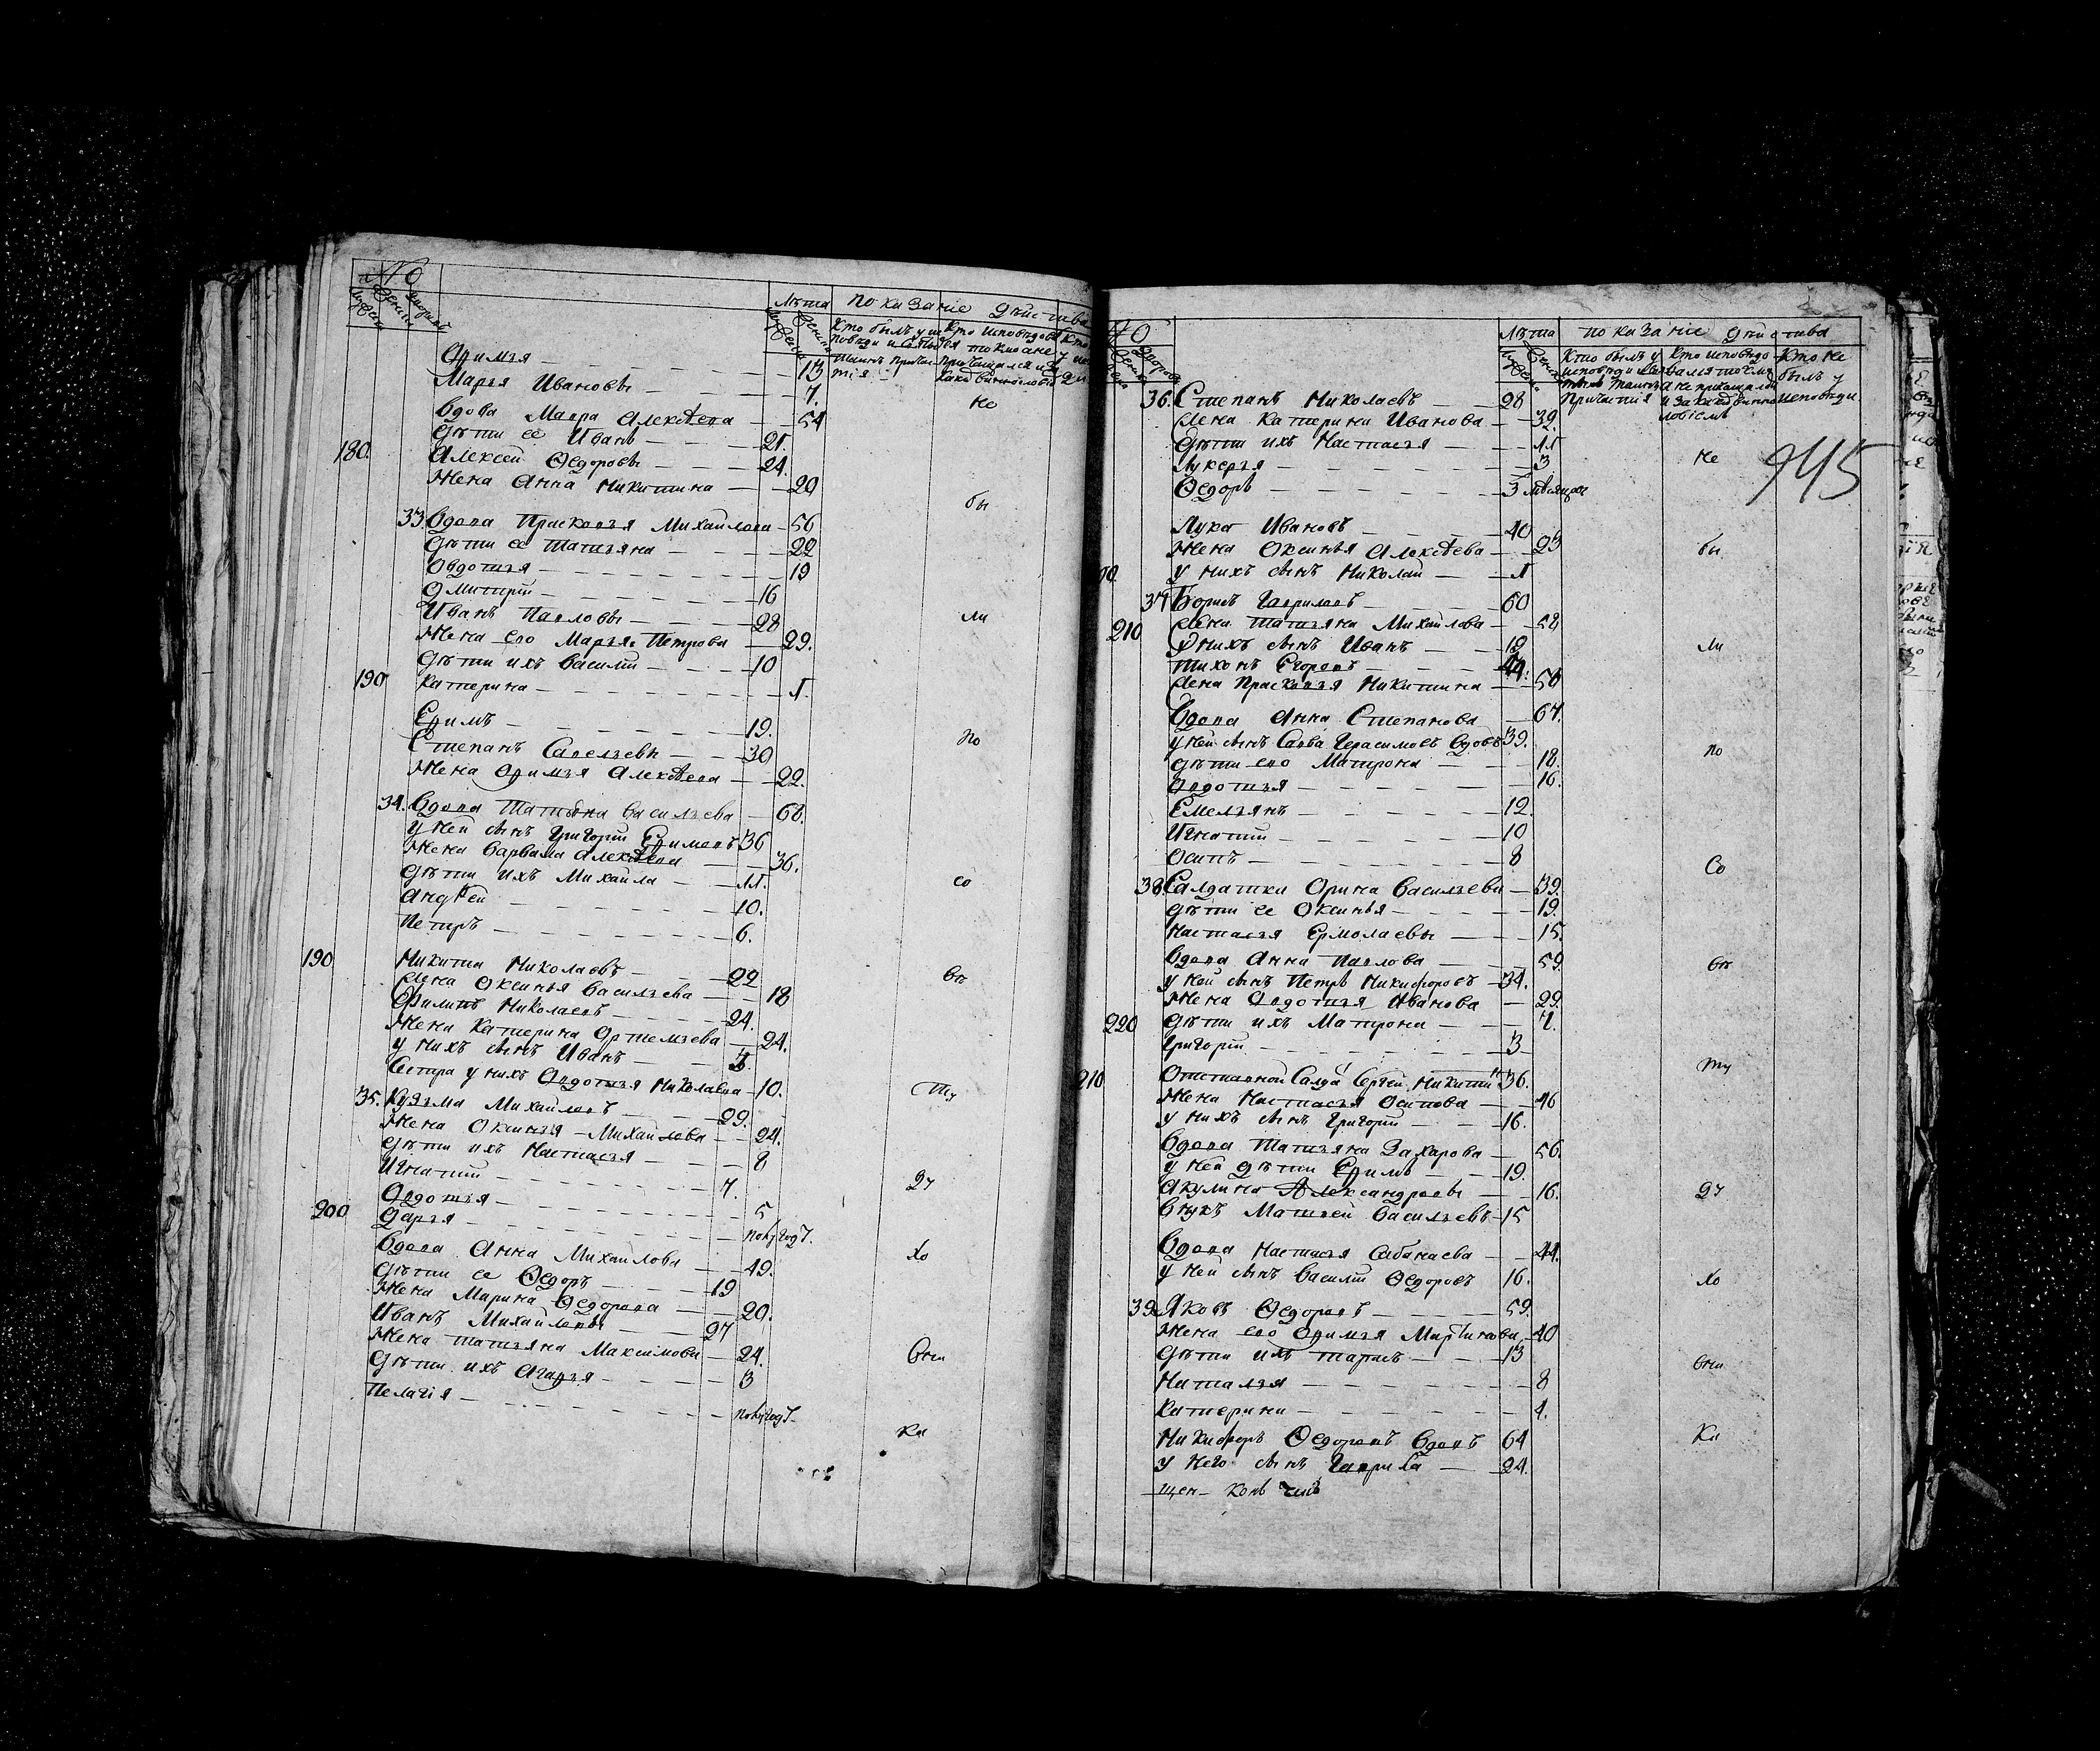 №
Лѣта показаніе дѣйства
Мужеска Женска дворовъ
Мужеска Женска
Кто былъ у исповѣди и святыхъ таинъ причастія
Кто исповѣдовался токмо а не причащался и за какъ виннословіемъ
Кто
Офимья — 13
Марья Ивановы — 7.
Вдова Мавра Алексѣева — 54
Дѣти ее Иванъ — 21.
180. Алексей Ѳедоровы — 24.
Жена Анна Никитина — 20
33. Вдова Прасковья Михайлова — 56
Дѣти ее Татьяна — 22
Овдотья — 19
Дмитрій — 16
Иванъ Павловы — 28
Жена его Марья Петрова — 29.
Дѣти ихъ Василій — 10
190 Катерина — 1.
Ефимъ — 19.
Степанъ Савельевы — 30
Жена Офимья Алексѣева — 22.
34. Вдова Татьяна Васильева — 60.
у ней сынъ Григорій Ефимовъ 36
Жена Варвара Алексѣева — 36.
Дѣти ихъ Михайла — 11.
Андрей — 10.
Петръ — 6.
190 Никита Николаевъ — 22
Жена Оксинья Васильева — 18
Филипъ Николаевъ — 24.
Жена Катерина Ортемьева — 24.
у нихъ сынъ Иванъ —
Сестра у нихъ Овдотья Николаева — 10.
35. Кузьма Михайловъ — 29.
Жена Оксинья Михайлова — 24.
Дѣти ихъ Настасья — 8
Игнатій — 7.
Овдотья — 5
200 Дарья — полугоду.
Вдова Анна Михайлова — 49.
Дѣти ее Ѳедоръ — 19
Жена Марина Ѳедорова — 20.
Иванъ Михайловы — 27
Жена Татьяна Максимова — 24.
Дѣти ихъ Агафья — 3
Пелагія — полугоду
Не
бы
ли
по
со
въ
ту
ду
хо
вни
ка
№
Лѣта показаніе дѣйства
Кто былъ у исповѣди и святыхъ таинъ причастія
Кто исповѣдовался токмо а не причащался и за какъ виннословіемъ
Кто не былъ у исповѣди
945
36. Степанъ Николаевъ — 28
Жена Катерина Иванова — 39.
Дѣти ихъ Настасья — 11
Лукерья — 3
Ѳедоръ — 3 мѣсяцовъ
Лука Ивановъ — 40
Жена Оксинья Алексѣева — 23
у нихъ сынъ Николай — 1
37 Борисъ Гавриловъ — 60
210 Жена Татьяна Михайлова — 58
У нихъ сынъ Иванъ — 19
Тихонъ Егоровъ — 44.
Жена Прасковья Никитина — 50
Вдова Анна Степанова — 67.
у ней сынъ Савва Герасимовъ вдовъ 39.
Дѣти его Матрона — 18.
Овдотья — 16.
Емельянъ — 12.
Игнатій — 10
Осипъ — 8
38. Салдатка Орина Васильева — 39.
Дѣти ее Оксинья — 19.
Настасья Ермолаевы — 15.
Вдова Анна Павлова — 59.
у ней сынъ Петръ Никифоровъ — 34.
Жена Овдотья Иванова — 29.
220 Дѣти ихъ Матрона — 7.
Григорій — 3
210 Отставной Салда Сергей Никитинъ 36.
Жена Настасья Осипова — 46
у нихъ сынъ Григорій — 16.
Вдова Татьяна Захарова — 56.
у ней дѣти Ефимъ — 19.
Акулина Александровы — 16.
Внукъ Матвей Васильевъ — 15
Вдова Настасья Сабанаева — 44.
у ней сынъ Василій Ѳедоровъ 16.
39. Яковъ Ѳедоровъ — 59.
Жена его Офимья Мартинова — 40
Дѣти ихъ Тарасъ — 13
Наталья — 8
Катерина — 4.
Никифоръ Ѳедоровъ вдовъ 64
у него сынъ Гаврила — 24.
Не
бы
ли
по
Со
въ
ту
ду
хо
вни
ка